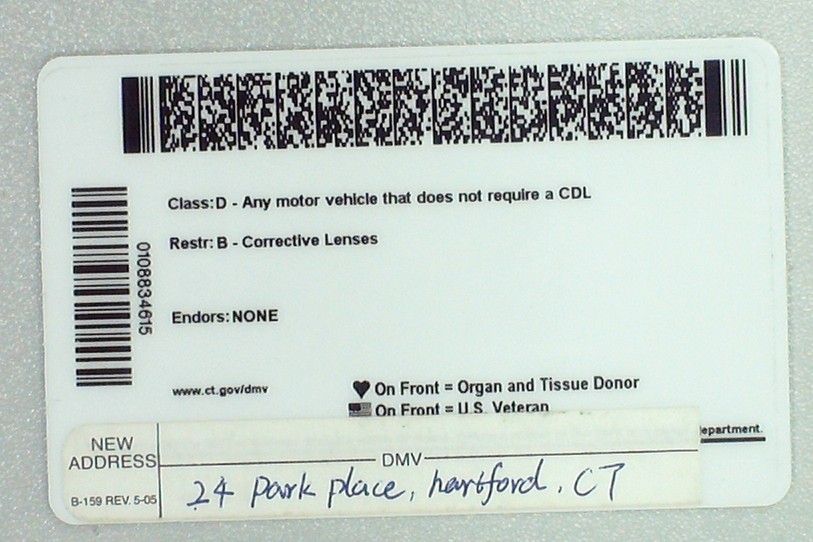 Class:D - Any motor vehicle that does not require a CDL
Restr: B - Corrective Lenses
0108834615
Endors: NONE
www.ct.gov/dmv
On Front = Organ and Tissue Donor
On Front = U.S. Veteran
epartment.
NEW
ADDRESS
DMV
B-159 REV. 5-05
24 park place, hartford, CT